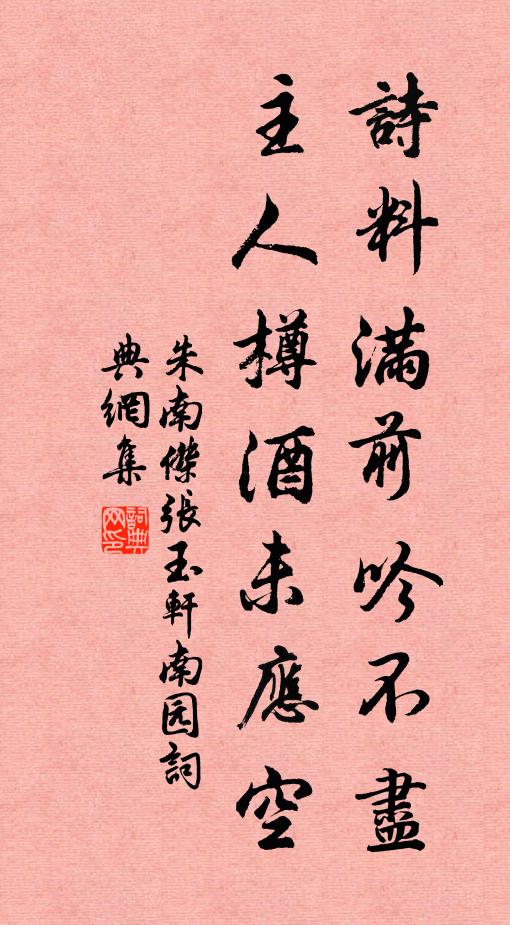 詩料滿前吟不盡
主人樽酒未應空
朱南傑張玉軒南园詞
典網集
詞典
网印